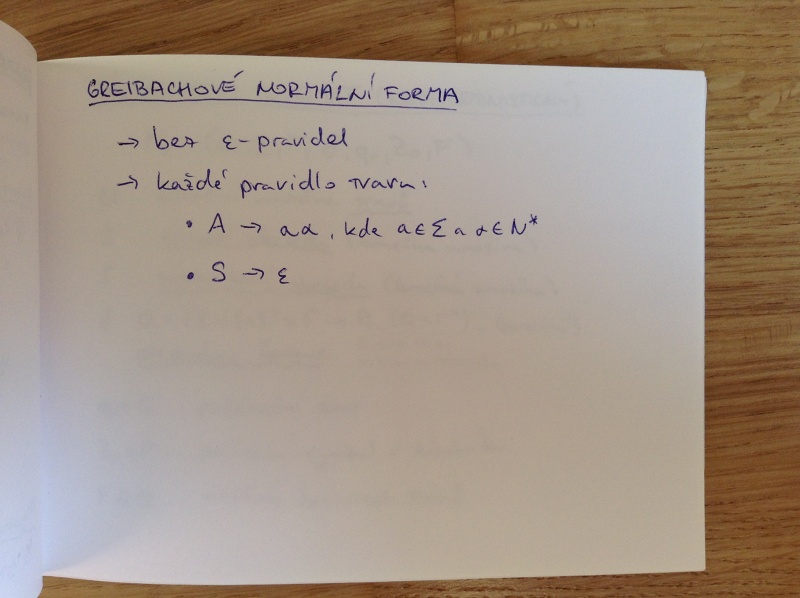 GREIBACHOVÉ NORMÁLNÍ FORMA
→ bez ε-pravidel
→ každé pravidlo tvaru:
• A → aα, kde a∈Σ a α∈N*
• S → ε